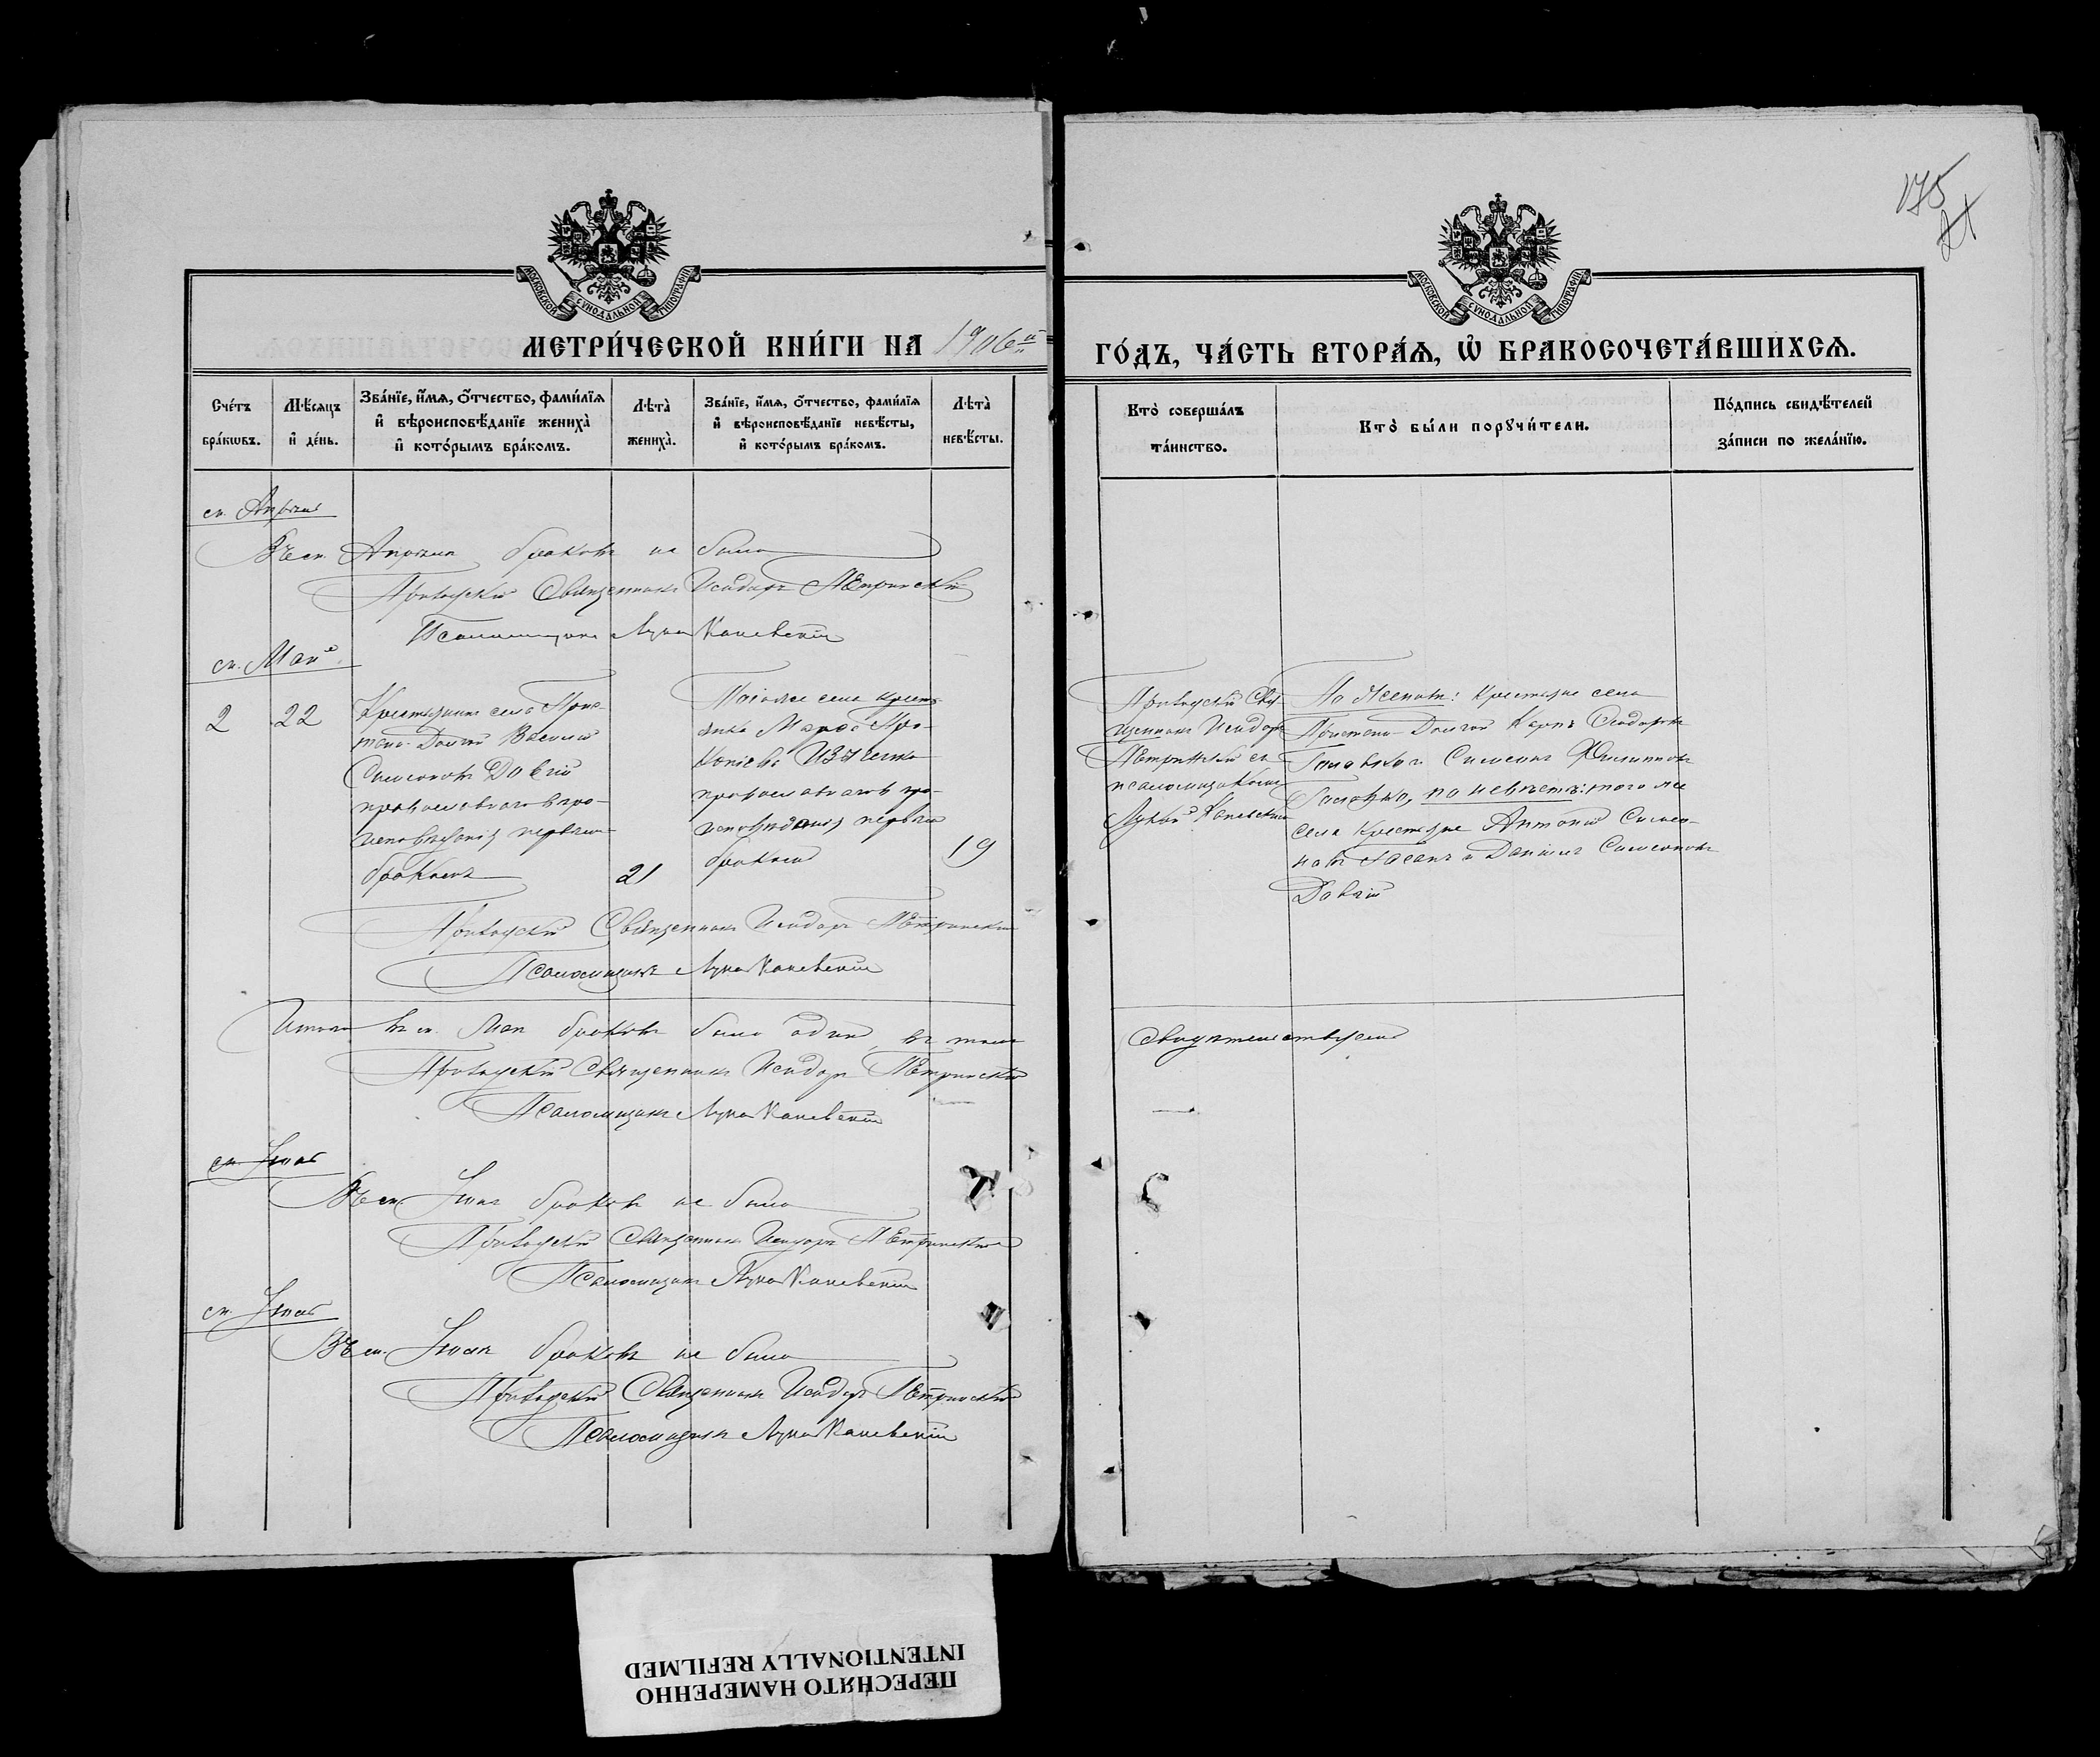 175
21
МОСКОВСКОЙ СѴНОДАЛЬНОЙ ТИПОГРАФІИ
МОСКОВСКОЙ СѴНОДАЛЬНОЙ ТИПОГРАФІИ
МЕТРИ́ЧЕСКОЙ КНИ́ГИ НА 1906й
ГО́ДЪ, ЧА́СТЬ ВТОРА́Ѧ, Ѡ БРАКОСОЧЕТА́ВШИХСѦ.
Сче́тъ бра́кѡвъ.
Мѣ́сѧцъ и де́нь.
Зва́нїе, и́мѧ, о́тчество, фами́лїѧ и вѣроисповѣ́данїе жениха̀ и кото́рымъ бра́комъ.
Лѣта̀ жениха̀.
Зва́нїе, и́мѧ, о́тчество, фами́лїѧ и вѣроисповѣ́данїе невѣ́сты, и кото́рымъ бра́комъ.
Лѣта̀ невѣ́сты.
Кто̀ соверша́лъ та́инство.
Кто̀ бы́ли порꙋчи́тели.
По́дпись свидѣ́телей за́писи по жела́нїю.
м. Апрѣль
Въ м. Апрѣлѣ браковъ не было
Приходскій Священникъ Исидоръ Петринскій
Псаломщикъ Лука Каневскій
м. Май
2
22
Крестьянинъ села При-
Василій
Симеоновъ Довгій
православнаго вѣро-
исповѣданія первымъ
бракомъ
21
Того же села крестья-
нка Марѳа Про-
православнаго вѣро-
исповѣданія первымъ
бракомъ
19
Приходскій Свя-
щенникъ Исидоръ
Петринскій съ
псаломщикомъ
Лукой Каневскимъ
По женихѣ: крестьяне села
Карпъ Ѳеодоровъ
Симеонъ Филипповъ
по невѣстѣ: того же
села крестьяне Антоній Симео-
новъ и Даніилъ Симеоновъ
Довгій
Приходскій Священникъ Исидоръ Петринскій
Псаломщикъ Лука Каневскій
Итого въ м. Маѣ браковъ было одинъ, въ томъ
свидѣтельствуемъ
Приходскій Священникъ Исидоръ Петринскій
Псаломщикъ Лука Каневскій
м. Іюнь
Въ м. Іюнѣ браковъ не было
Приходскій Священникъ Исидоръ Петринскій
Псаломщикъ Лука Каневскій
м. Іюль
Въ м. Іюлѣ браковъ не было
Приходскій Священникъ Исидоръ Петринскій
Псаломщикъ Лука Каневскій
ПЕРЕСНЯТО НАМЕРЕННО
INTENTIONALLY REFILMED